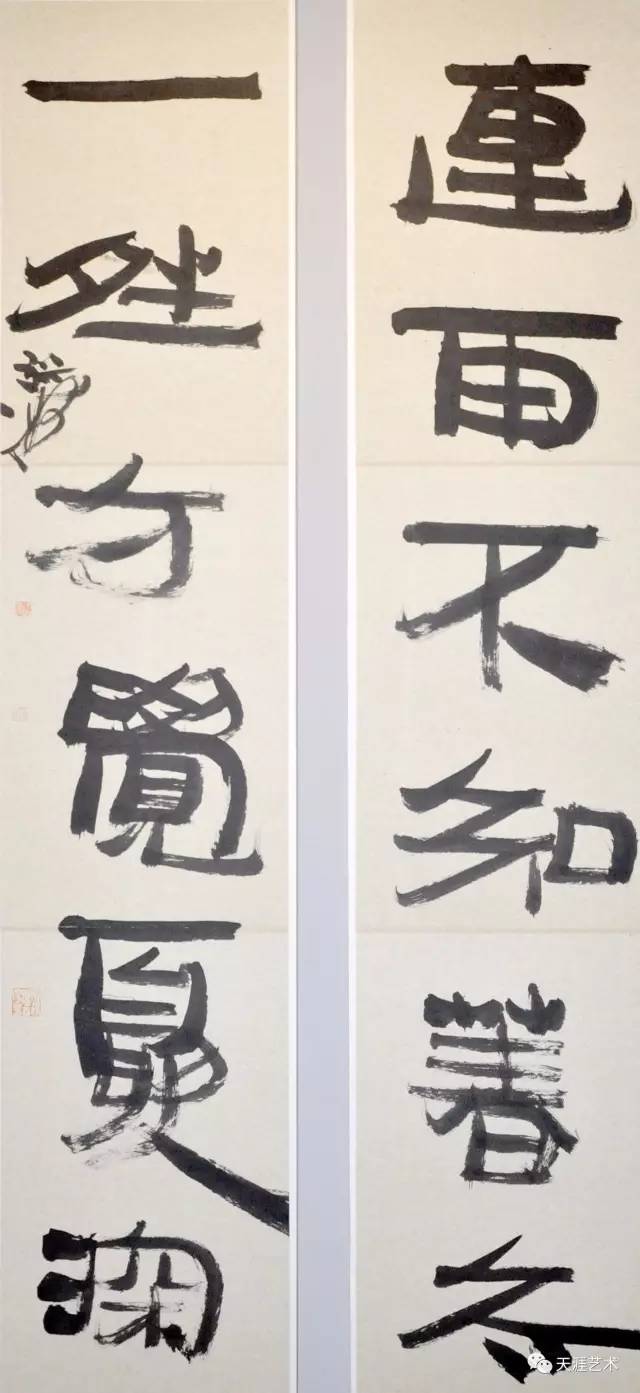 連雨不知春去
一夝方覺夏深
天涯艺术